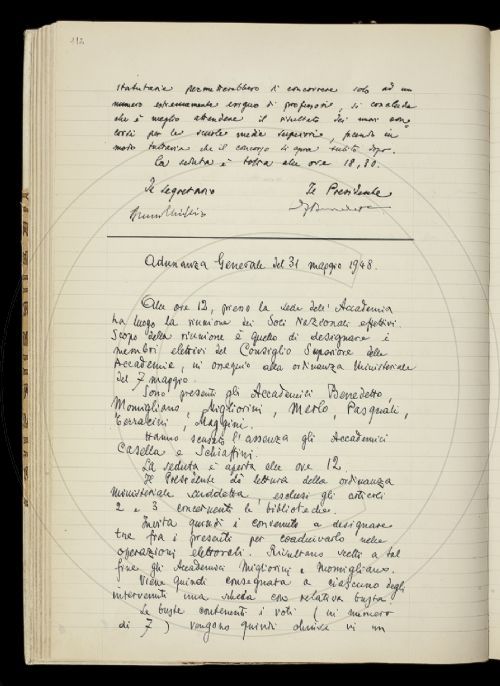 112.
statutaria permetterebbero di concorrere solo ad un
numero estremamente esiguo di professori, si conclude
che è meglio attendere il risultato dei nuovi con=
corsi per le scuole medie superiori, facendo in
modo tuttavia che il concorso si apra subito dopo.
La seduta è tolta alle ore 18,30.
Il Segretario Il Presidente
Adunanza Generale del 31 maggio 1948.
Alle ore 12, presso la sede dell'Accademia
ha luogo la riunione dei Soci Nazionali effettivi.
Scopo della riunione è quello di designare i
membri elettivi del Consiglio Superiore delle
Accademie, in ossequio alla ordinanza Ministeriale
del 7 maggio.
Sono presenti gli Accademici Benedetto,
Momigliano, Migliorini, Merlo, Pasquali,
Terracini, Maggini.
Hanno scusato l'assenza gli Accademici
Casella e Schiaffini.
La seduta è aperta alle ore 12.
Il Presidente dà lettura della ordinanza
ministeriale suddetta, esclusi gli articoli
2 e 3 concernenti le biblioteche.
Invita quindi i convenuti a designare
tre fra i presenti per coadiuvarlo nelle
operazioni elettorali. Risultano scelti a tal
fine gli Accademici Migliorini e Momigliano.
Viene quindi consegnata a ciascuno degli
intervenuti una scheda con relativa busta.
Le buste contenenti i voti (in numero
di 7) vengono quindi chiuse in un